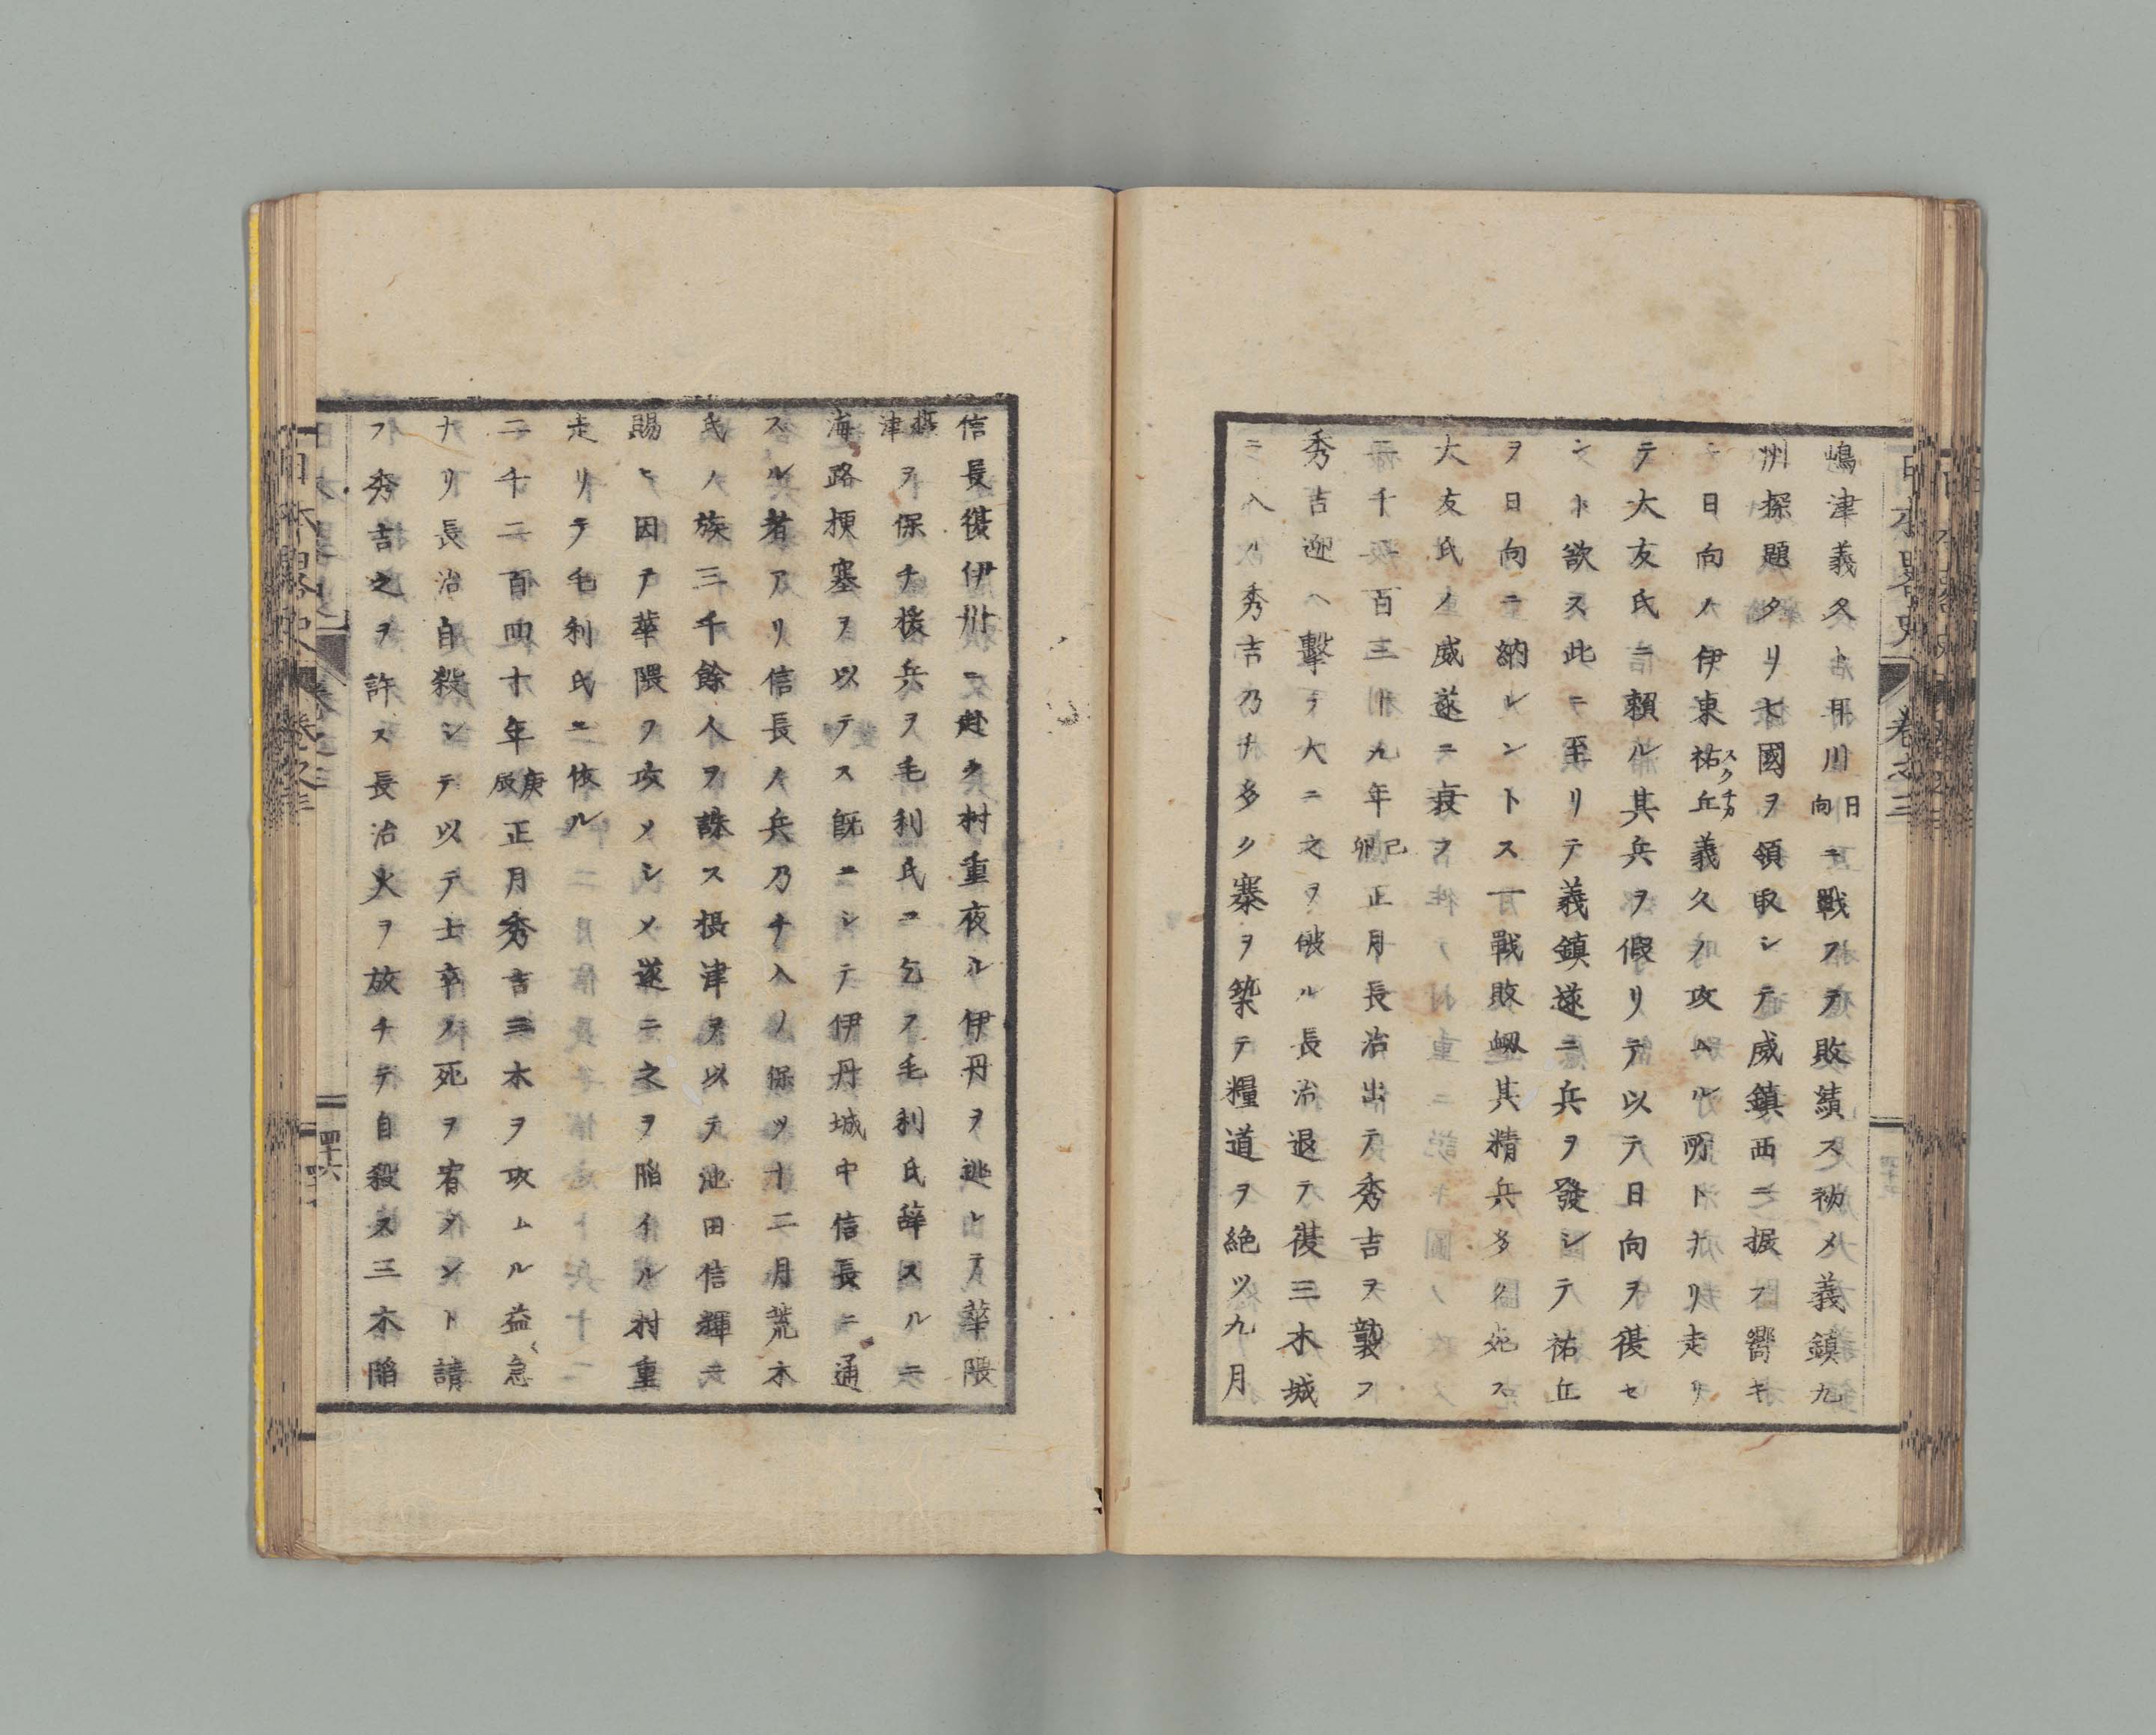 日本畧史 卷之三
嶋津義久ト耳川日向ニ戰フテ敗績ス初メ義鎮九
州探題タリ七國ヲ領取シテ威鎮西ニ振フ嚮キ
ニ日向ノ伊東祐丘スケチカ義久ノ攻ムル所トナリ走リ
テ大友氏ニ賴ル其兵ヲ假リテ以テ日向ヲ復セ
ント欲ス此ニ至リテ義鎮遂ニ兵ヲ發シテ祐丘
ヲ日向ニ納レントス一戰敗衂其精兵多ク死ス
大友氏ノ威遂ニ衰フ
二千二百三十九年己卯正月長治出テ秀吉ヲ襲フ
秀吉迎ヘ擊テ大ニ之ヲ破ル長治退テ復三木城
ニ入ル秀吉乃チ多ク寨ヲ築テ糧道ヲ絶ツ九月
信長復伊丹ニ赴ク村重夜ル伊丹ヲ逃レテ華隈
攝津ヲ保チ援兵ヲ毛利氏ニ乞フ毛利氏辭スルニ
海路梗塞ヲ以テス既ニシテ伊丹城中信長ニ通
スル者アリ信長ノ兵乃チ入ル保ツ十二月荒木
氏ノ族三千餘人ヲ誅ス攝津ヲ以テ池田信輝ニ
賜ヒ因テ華隈ヲ攻メシメ遂ニ之ヲ陷イル村重
走リテ毛利氏ニ依ル
二千二百四十年庚辰正月秀吉三木ヲ攻ムル益〻急
ナリ長治自殺シテ以テ士卒ノ死ヲ宥メント請
フ秀吉之ヲ許ス長治火ヲ放チテ自殺ス三木陷
四十六